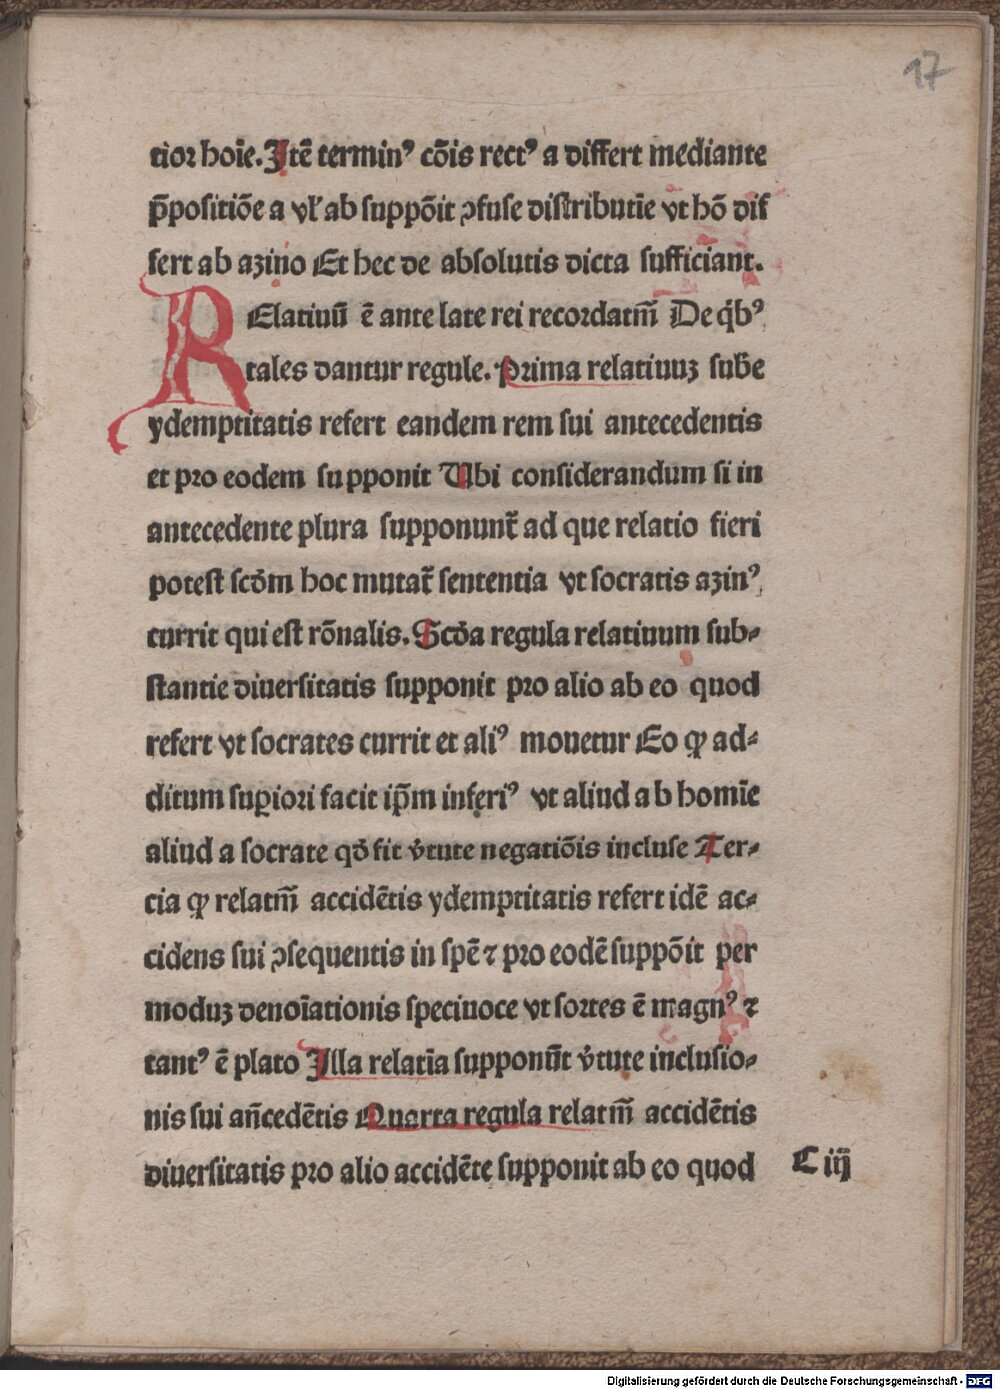 17
tior hoīe. Itē terminꝰ cōis rectꝰ a differt mediante
p̄positiōe a vl' ab suppōit ↄfuse distributīe vt hō dif
fert ab azino Et hec de absolutis dicta sufficiant.
RElatiuū ē ante late rei recordatm̄ De q̇bꝰ
tales dantur regule. Prima relatiuuȝ subē
ydemptitatis refert eandem rem sui antecedentis
et pro eodem supponit Ubi considerandum si in
antecedente plura supponunt̄ ad que relatio fieri
potest scd̄m hoc mutat̄ sententia vt socratis azinꝰ
currit qui est rōnalis. Scd̄a regula relatiuum sub⸗
stantie diuersitatis supponit pro alio ab eo quod
refert vt socrates currit et aliꝰ mouetur Eo ꝙ ad⸗
ditum suꝑiori facit ip̄m inferiꝰ vt aliud ab homīe
aliud a socrate qd̄ fit v̄tute negatiōis incluse Ter⸗
cia ꝙ relatm̄ accidētis ydemptitatis refert idē ac⸗
cidens sui ↄsequentis in spē ⁊ pro eodē suppōit per
moduȝ denoīationis speciuoce vt sortes ē magnꝰ ⁊
tantꝰ ē plato Illa relatīa supponūt v̄tute inclusio⸗
nis sui an̄cedētis Quarta regula relatm̄ accidētis
diuersitatis pro alio accidēte supponit ab eo quod
C iij
Digitalisierung gefördert durch die Deutsche Forschungsgemeinschaft - DFG